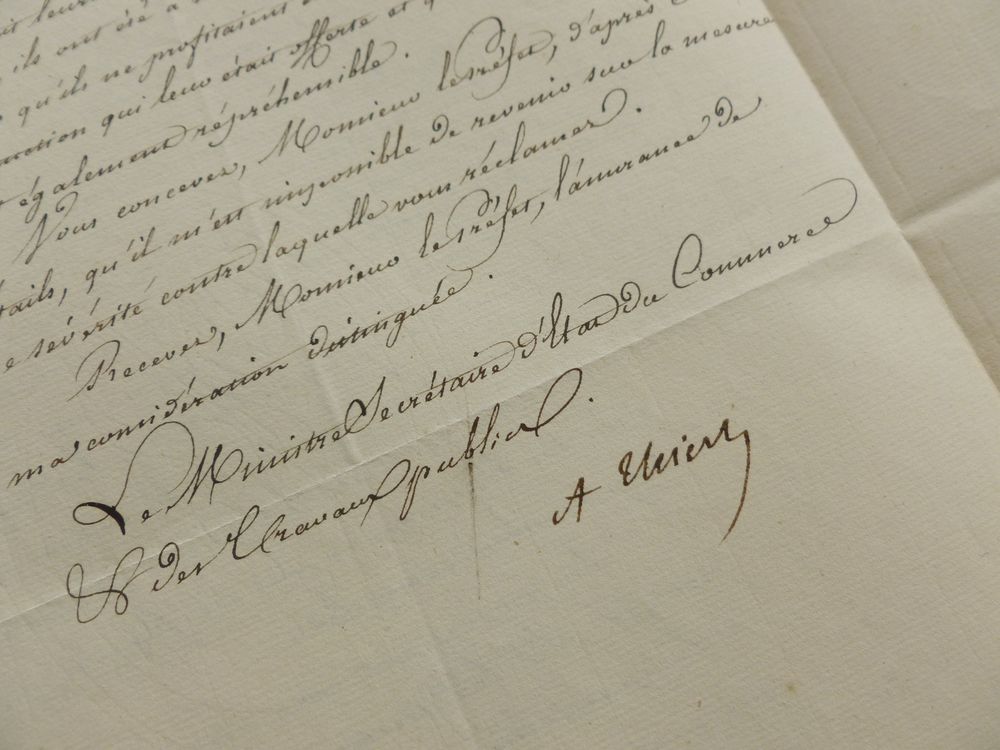 leurs
ils ont été à
qu'ils ne profitaient
qui leur était offerte et
également répréhensible.
Vous concevez, Monsieur le Préfet, d'après
tails, qu'il m'est impossible de revenir sur la mesure
e sévérité contre laquelle vous réclamez.
Recevez, Monsieur le Préfet, l'assurance de
ma considération distinguée.
Le Ministre Secrétaire d'Etat du Commerce
& des Travaux publics.
A Thiers